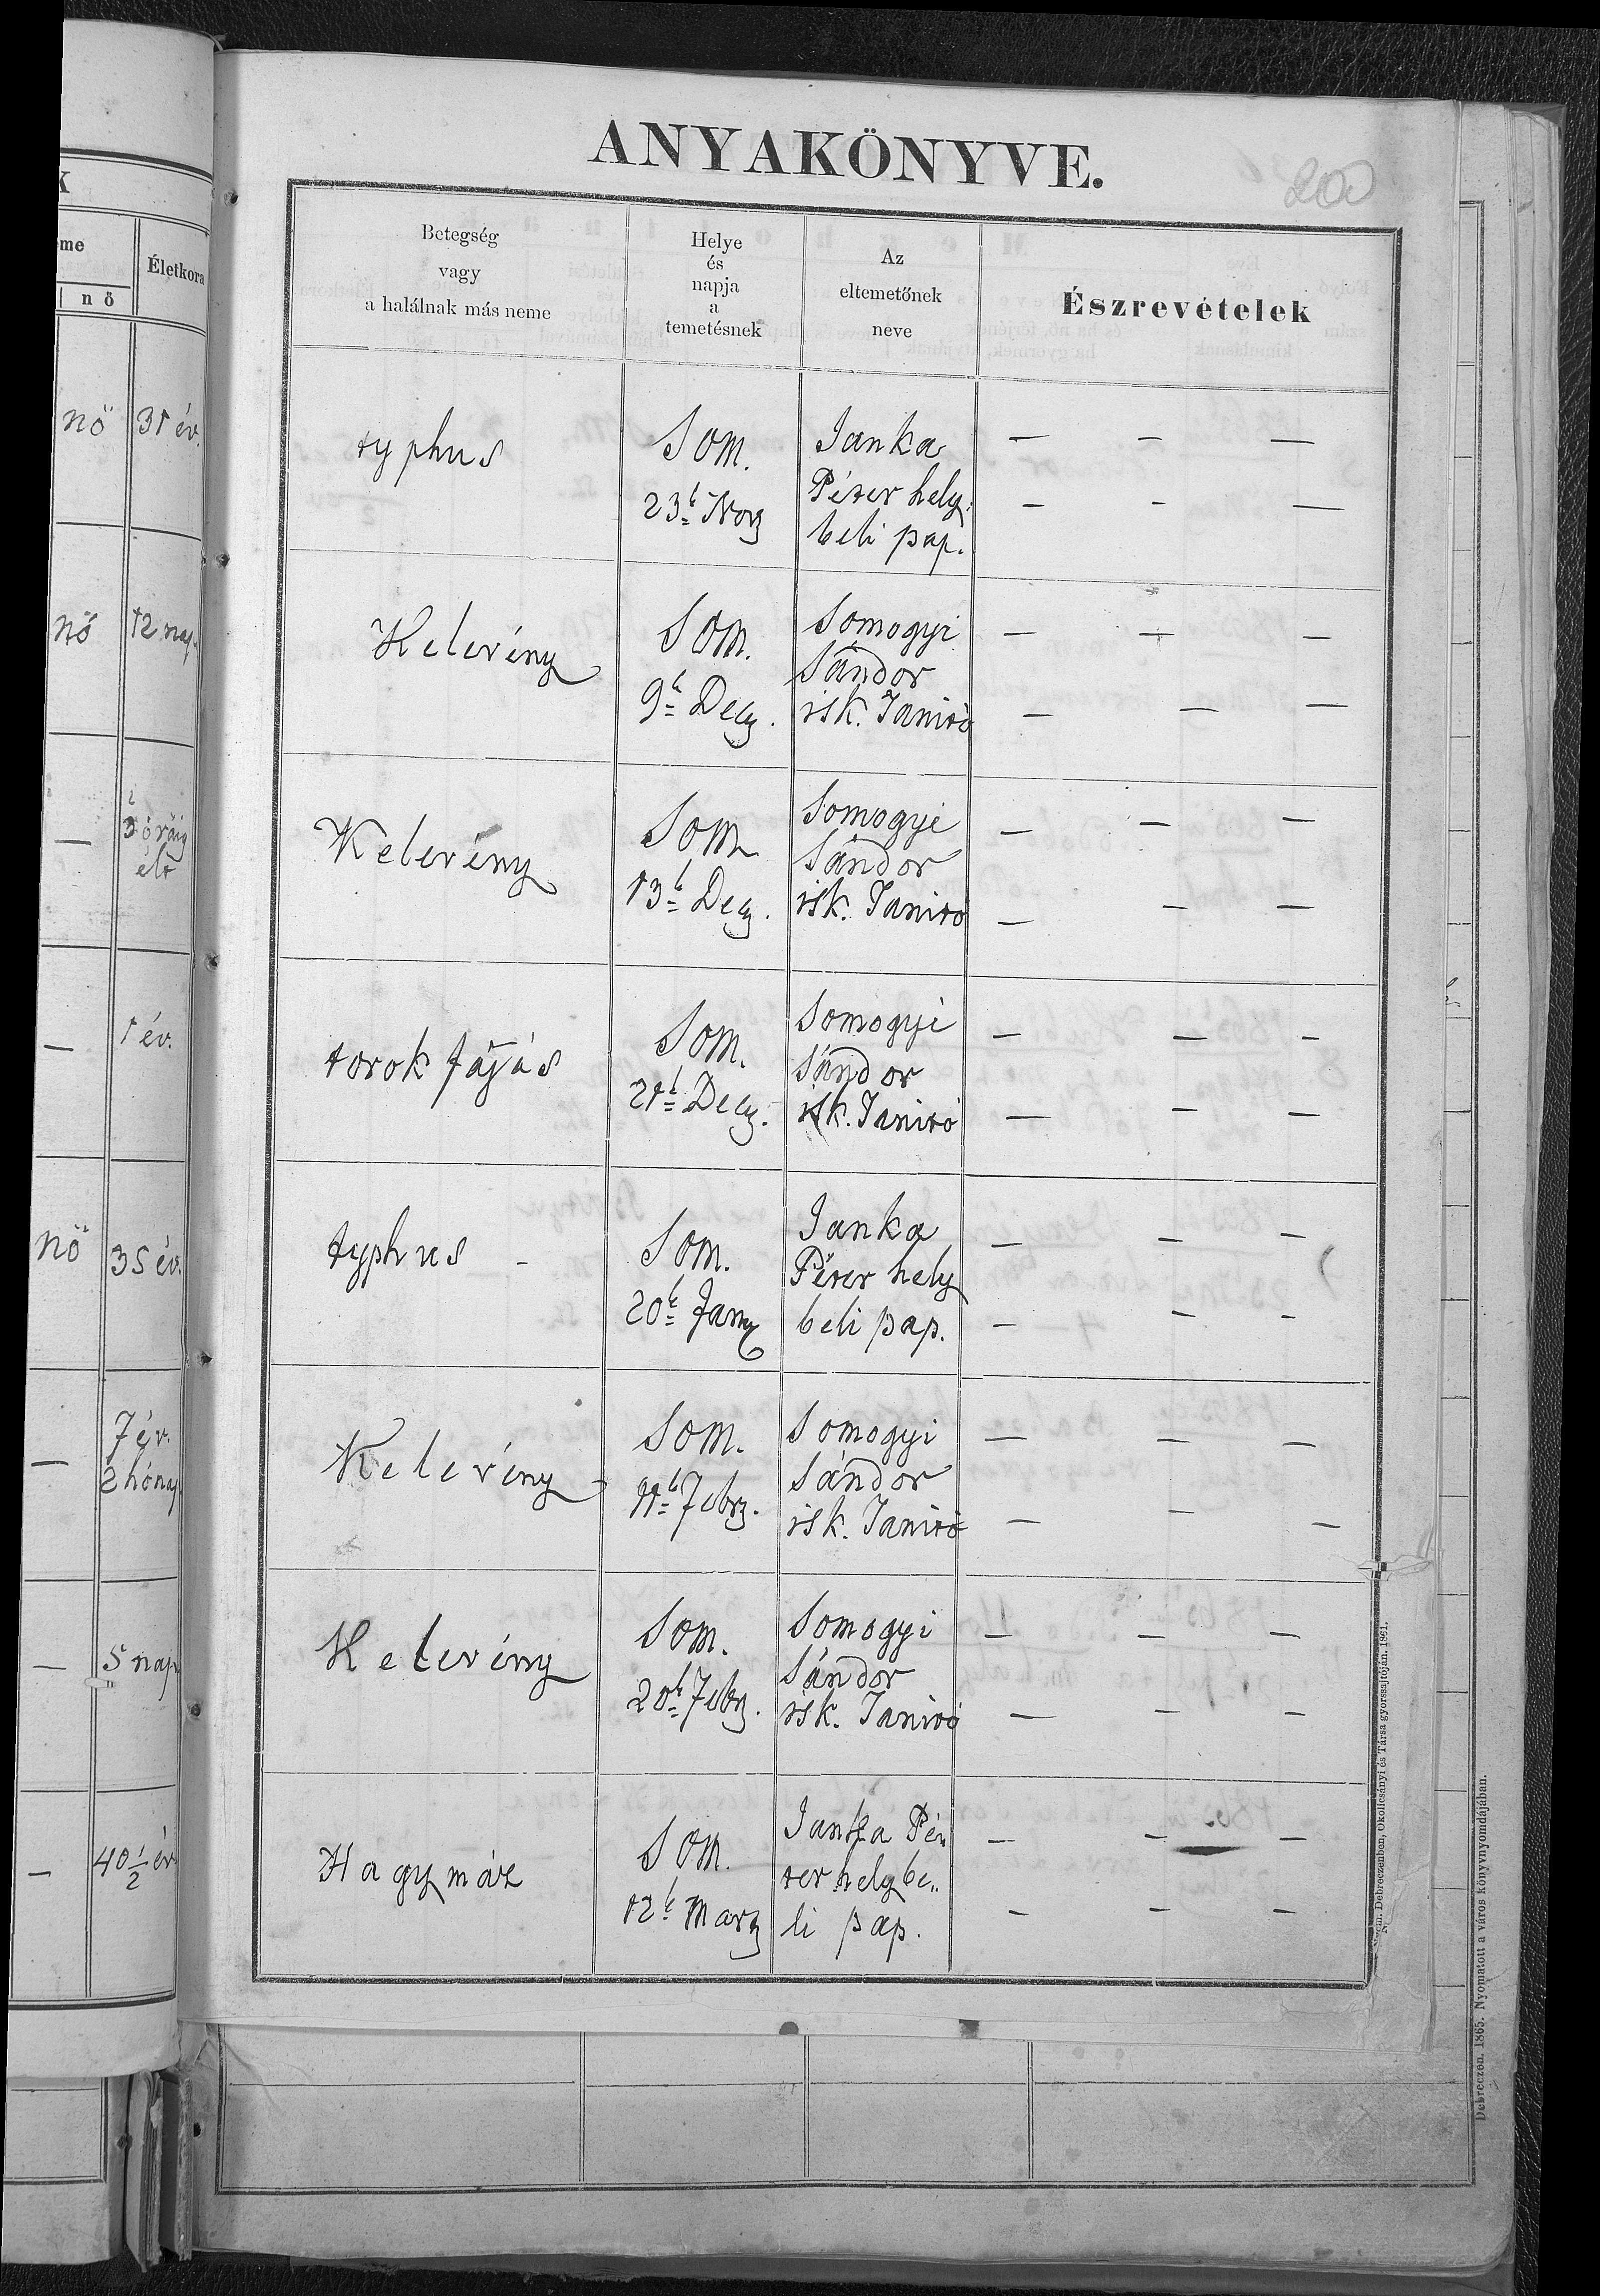 ANYAKÖNYVE.
200
K
me
nő
Életkora
Betegség
vagy
a halálnak más neme
Helye
és
napja
a
temetésnek
Az
eltemetőnek
neve
Észrevételek
nő
31 év.
typhus
Som.
23k Nov
Janka
Péter hely:
beli pap.
— — —
— - —
nő
12 nap.
Kelevény
Som.
9k Dec.
Somogyi
Sándor
isk. Tanító
— — —
— — —
—
óráig
élt
Kelevény
Som
13k Dec.
Somogyi
Sándor
isk. Tanító
— — —
— — —
—
1 év.
torok fájás
Som.
21k Dec.
Somogyi
Sándor
isk. Tanító
— — -
— - —
nő
35 év.
typhus -
Som.
20k Jan
Janka
Péter hely
beli pap.
— - —
- - -
—
7 év.
2 hónap
Kelevény
Som.
11k Febr.
Somogyi
Sándor
isk. Tanító
— — —
— — —
—
5 nap
Kelevény
Som.
20k Febr.
Somogyi
Sándor
isk. Tanító
— — —
— — -
—
40 1/2 év
Hagymáz
Som.
12k Marz
Janka Pé„
ter helybe„
li pap.
— — —
- - -
Nyom. Debreczenben, Okolicsányi és Társa gyorssajtóján. 1861.
Debreczen. 1865. Nyomatott a város könyvnyomdájában.